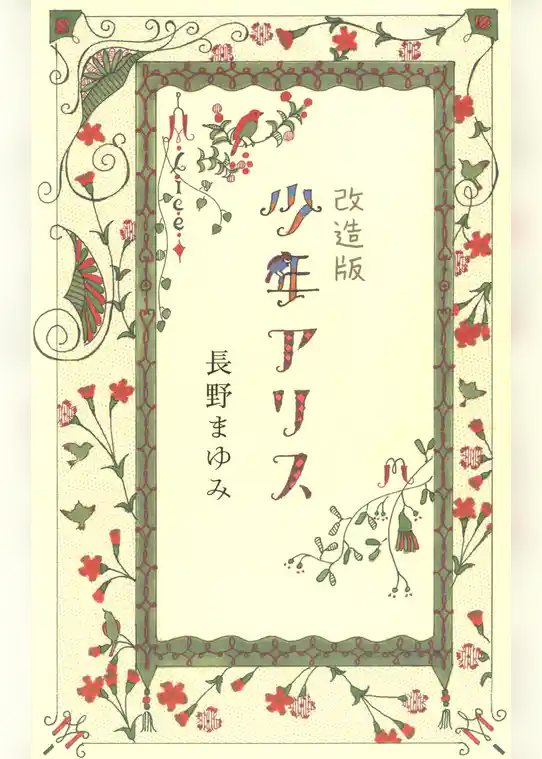 改造版
少年アリス
Alice
長野まゆみ